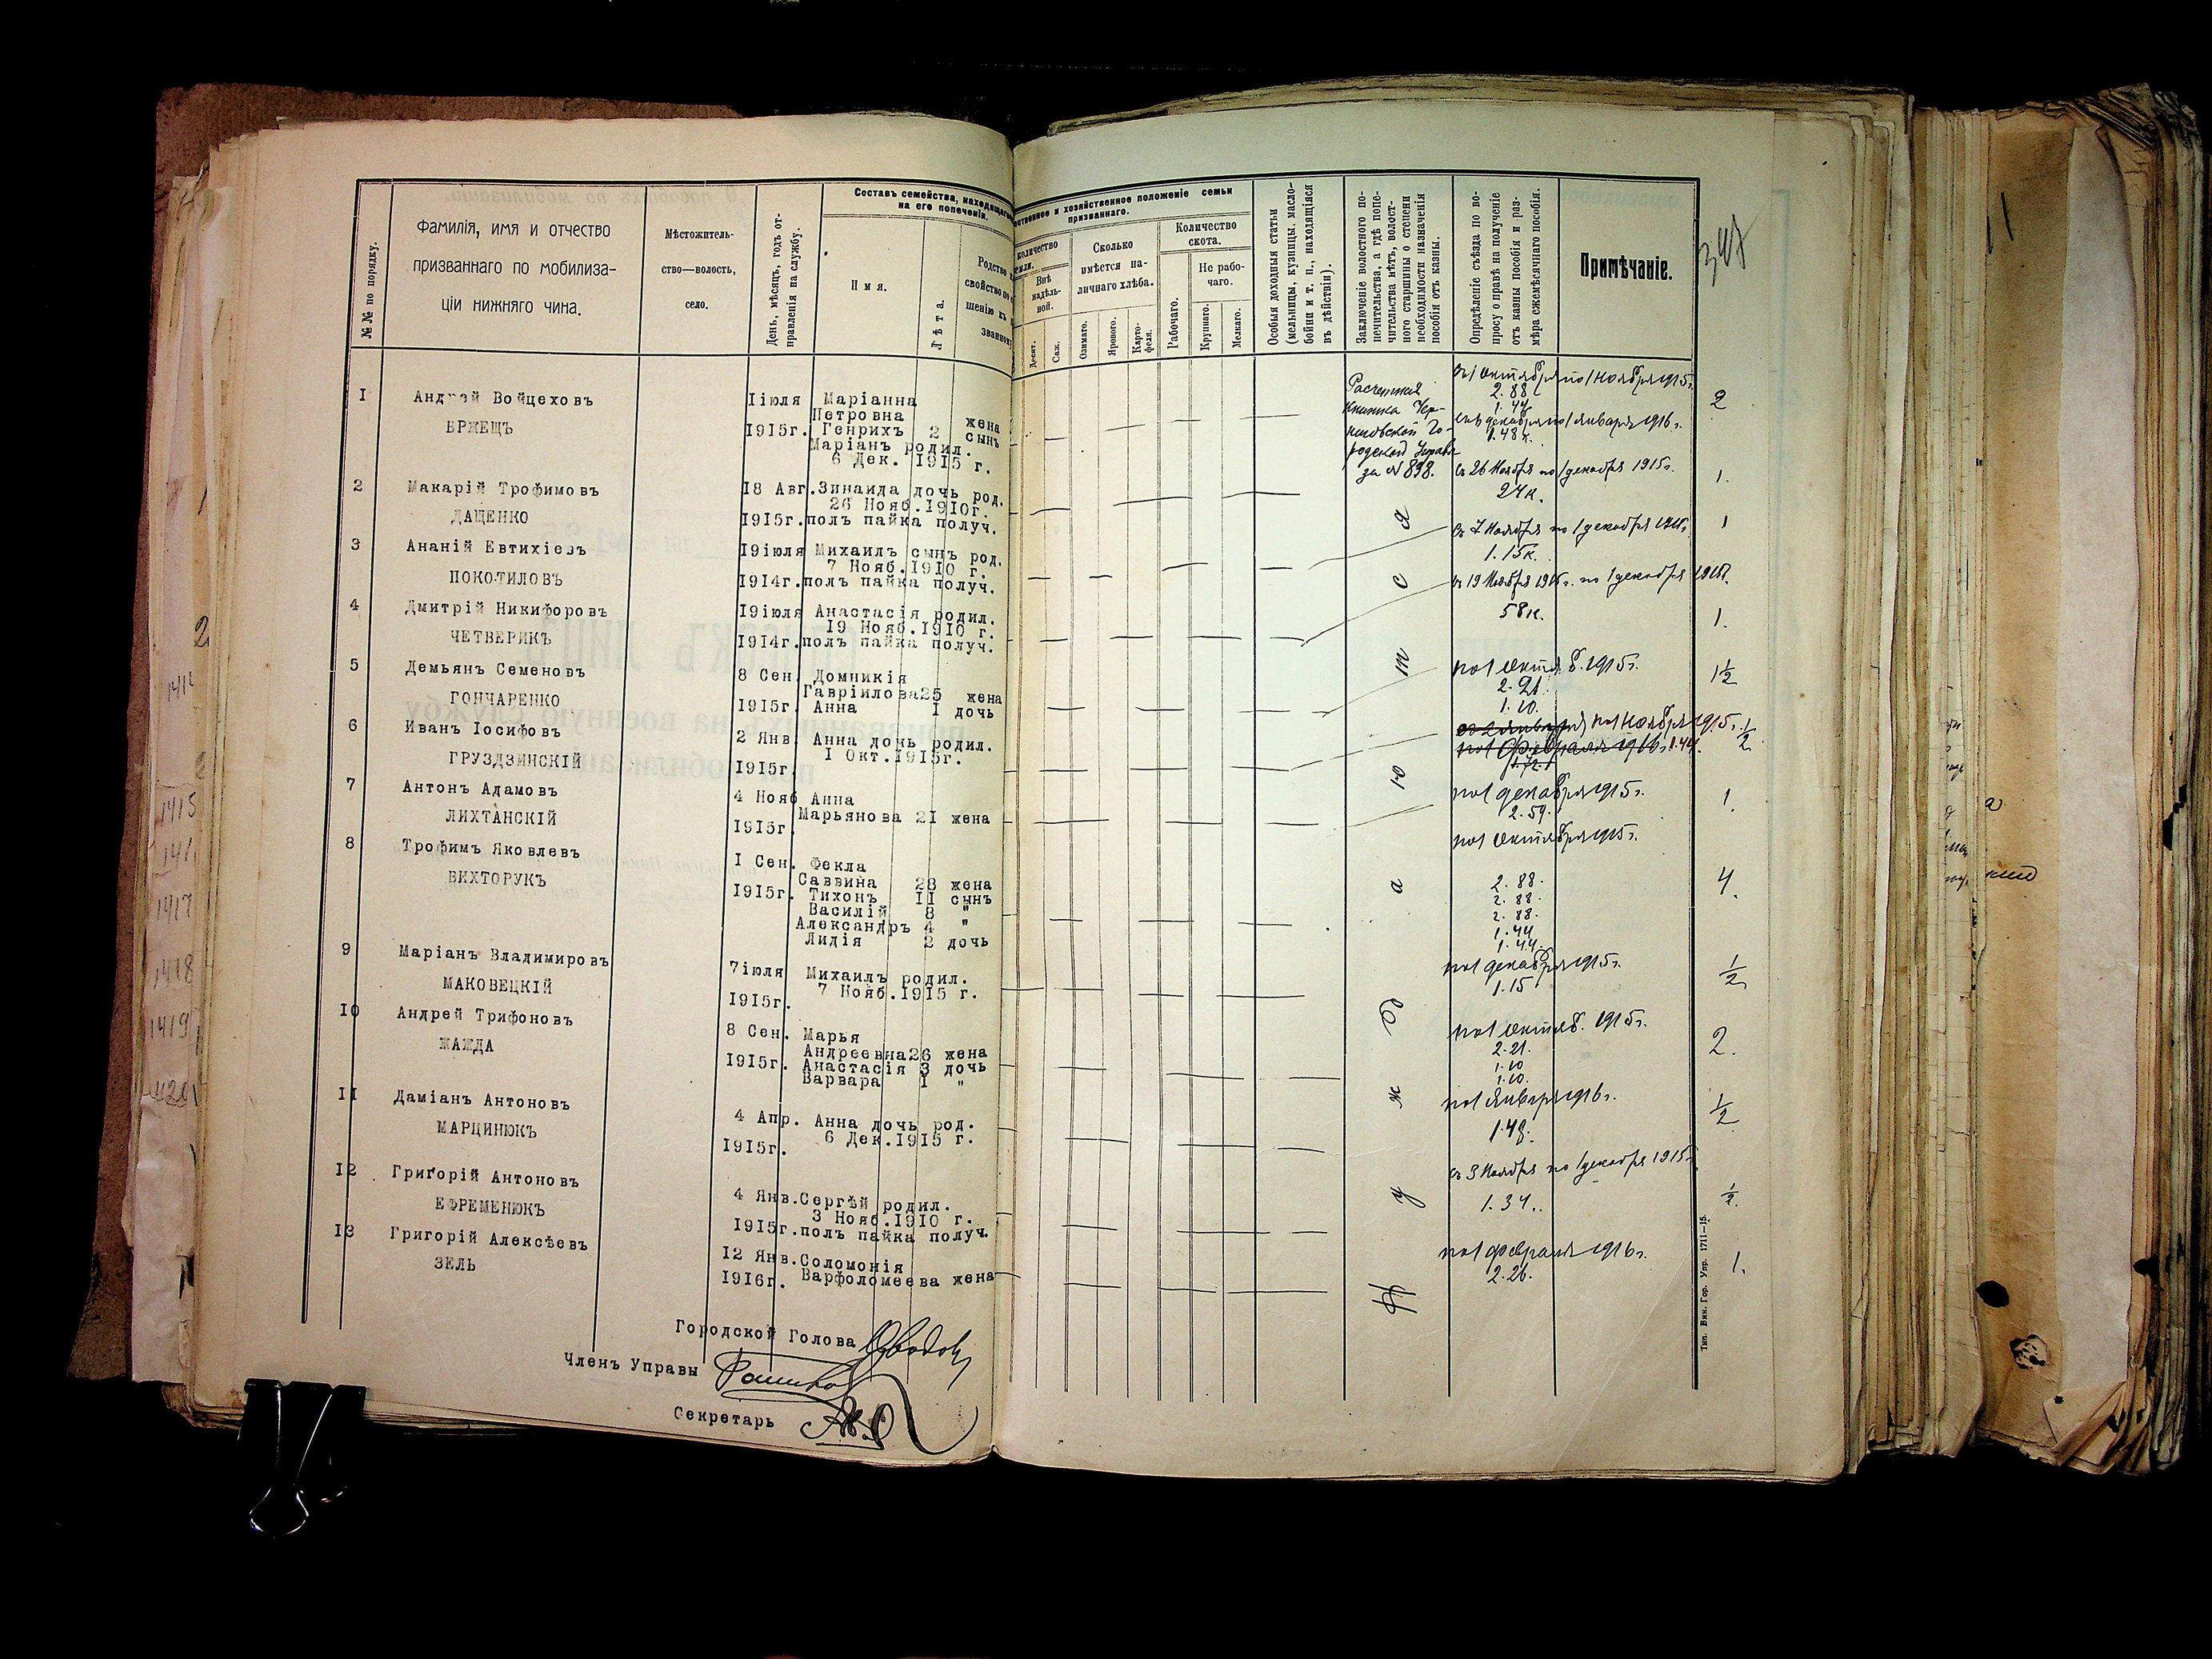 Фамилія, имя и отчество
призваннаго по мобилиза-
ціи нижняго чина.
№№ по порядку.
Мѣстожитель-
ство—волость,
село.
День, мѣсяцъ, годъ от-
правленія на службу.
Составъ семейства, находящаго
на его попеченіи.
Имя.
Лѣта.
Родство
свойство по
шенію къ
званном
1
Андрей Войцеховъ
БРЖЕЩЪ
1 іюля
1915г.
Маріанна
Петровна жена
Генрихъ 2 сынъ
Маріанъ родил.
6 Дек. 1915 г.
2
Макарій Трофимовъ
ДАЩЕНКО
18 Авг.
1915г.
Зинаида дочь род.
26 Нояб.1910г.
полъ пайка получ.
3
Ананій Евтихіевъ
ПОКОТИЛОВЪ
19 іюля
1914г.
Михаилъ сынъ род.
7 Нояб.1910 г.
полъ пайка получ.
4
Дмитрій Никифоровъ
ЧЕТВЕРИКЪ
19 іюля
1914г.
Анастасія родил.
19 Нояб.1910 г.
полъ пайка получ.
5
Демьянъ Семеновъ
ГОНЧАРЕНКО
8 Сен.
1915г.
Домникія
Гавріилова 25 жена
Анна 1 дочь
6
Иванъ Іосифовъ
ГРУЗДЗИНСКІЙ
2 Янв.
1915г.
Анна дочь родил.
1 Окт.1915г.
7
Антонъ Адамовъ
ЛИХТАНСКІЙ
4 Нояб
1915г.
Анна
Марьянова 21 жена
8
Трофимъ Яковлевъ
ВИХТОРУКЪ
1 Сен.
1915г.
Фекла
Саввина 28 жена
Тихонъ 11 сынъ
Василій 8 "
Александръ 4 "
Лидія 2 дочь
9
Маріанъ Владимировъ
МАКОВЕЦКІЙ
7 іюля
1915г.
Михаилъ родил.
7 Нояб.1915 г.
10
Андрей Трифоновъ
ЖАЖДА
8 Сен.
1915г.
Марья
Андреевна 26 жена
Анастасія 3 дочь
Варвара 1 "
11
Даміанъ Антоновъ
МАРЦИНЮКЪ
4 Апр.
1915г.
Анна дочь род.
6 Дек.1915 г.
12
Григорій Антоновъ
ЕФРЕМЕНЮКЪ
4 Янв.
1915г.
Сергѣй родил.
3 Нояб.1910 г.
полъ пайка получ.
13
Григорій Алексѣевъ
ЗЕЛЬ
12 Янв.
1916г.
Соломонія
Варфоломеева жена
Городской Голова
Членъ Управы
Секретарь
ственное и хозяйственное положеніе семьи
призваннаго.
количество
земли.
Внѣ
надѣль-
ной.
Десят.
Саж.
Сколько
имѣется на-
личнаго хлѣба.
Озимаго.
Ярового.
Карто-
феля.
Количество
скота.
Рабочаго.
Не рабо-
чаго.
Крупнаго.
Мелкаго.
Особыя доходныя статьи
(мельницы, кузницы, масло-
бойни и т. п., находящіяся
въ дѣйствіи).
Заключеніе волостного по-
печительства, а гдѣ попе-
чительства нѣтъ, волост-
ного старшины о степени
необходимости назначенія
пособія отъ казны.
Опредѣленіе съѣзда по во-
просу о правѣ на полученіе
отъ казны пособія и раз-
мѣра ежемѣсячнаго пособія.
Примѣчаніе.
347
Расчетная
книжка Чер-
ниговской Го-
родской Управы
за № 898.
н у ж д а ю т с я
съ 1 октября по 1 ноября 1915г.
2.88
1.44
съ 6 декабря по 1 января 1916г.
1.48к.
2
съ 26 Ноября по 1 декабря 1915г.
24к.
1.
съ 7 Ноября по 1 декабря 1915г.
1.15к.
1
съ 19 Ноября 1915г. по 1 декабря 1915г.
58к.
1.
по 1 октяб. 1915г.
2.21.
1.10.
1½
по 1 Ноября 1915г.
по 1 февраля 1916г. 1.44
½
по 1 декабря 1915г.
2.59.
1.
по 1 октября 1915г.
2.88.
2.88.
2.88.
1.44
1.44.
4.
по 1 декабря 1915г.
1.15
½
по 1 октяб. 1915г.
2.21.
1.10
1.10.
2.
по 1 января 1916г.
1.48.
½
съ 3 Ноября по 1 декабря 1915г.
1.34..
½.
по 1 февраля 1916г.
2.26.
1.
Тип. Вин. Гор. Упр. 1711—15.
1415
1417
1418
1419